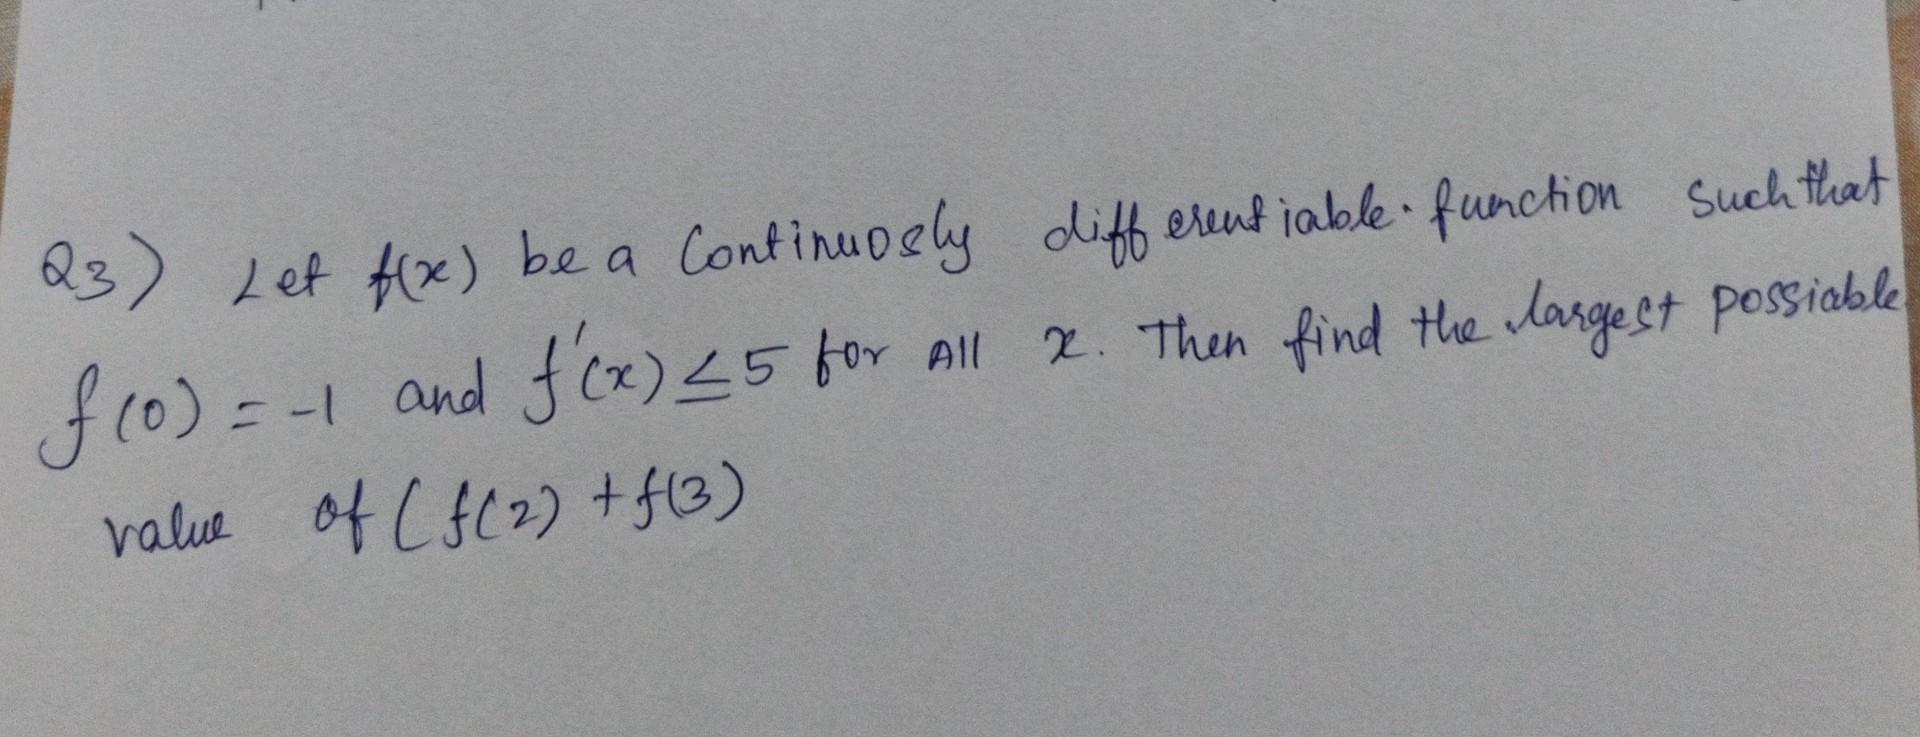 Q3) Let f(x) be a Continuosly differentiable. function Such that
f(0) = -1 and f'(x) ≤ 5 for All x. Then find the largest possiable
value of (f(2) + f(3)